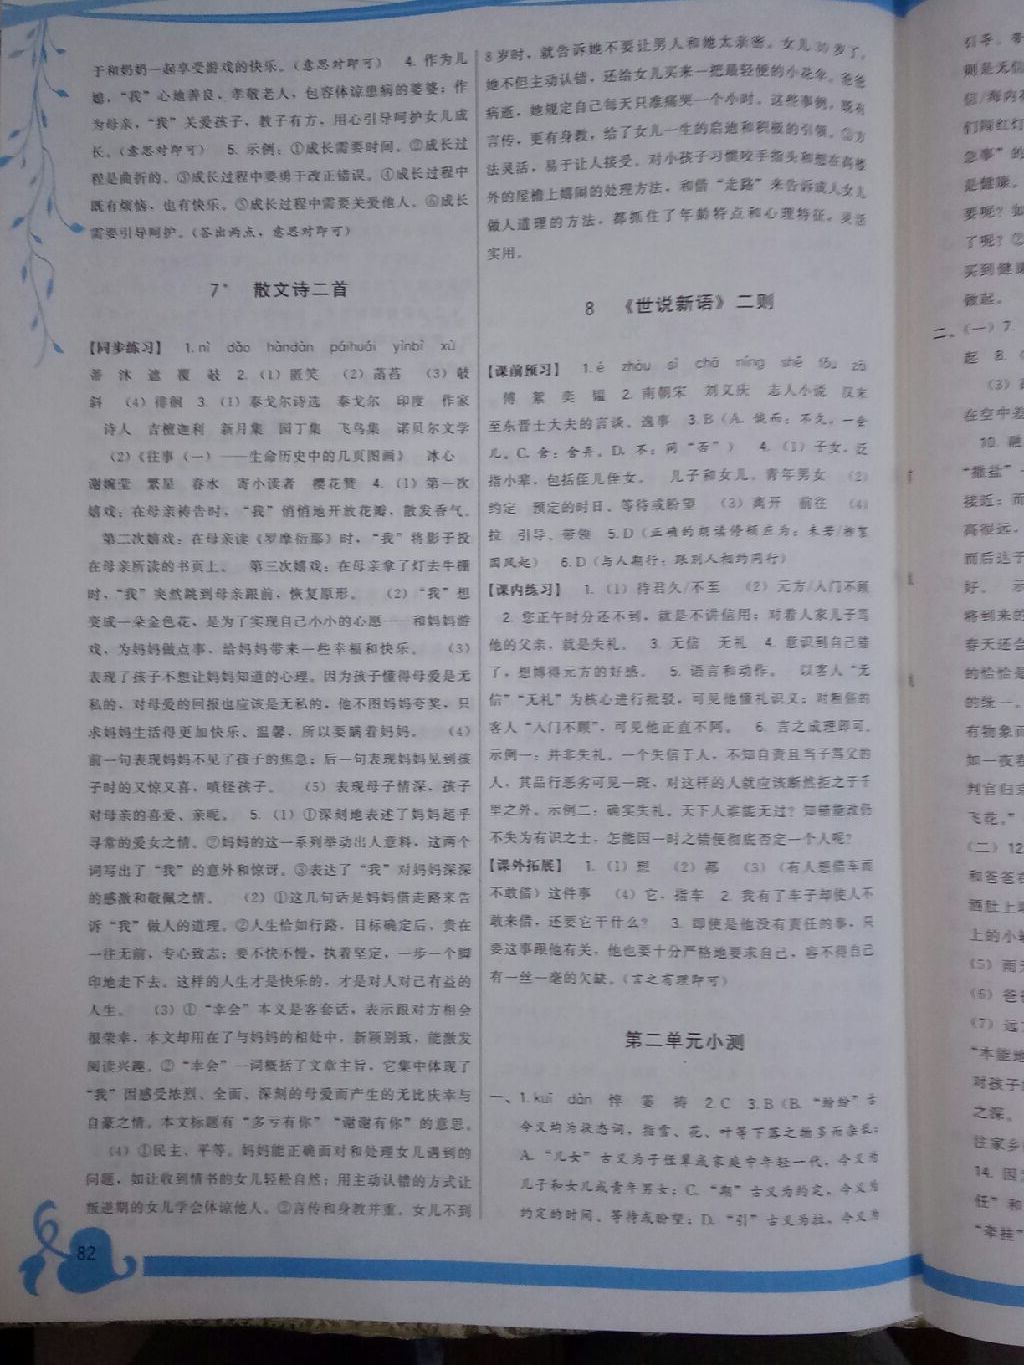 于和奶奶一起享受游戏的快乐。(意思对即可) 4. 作为儿
媳,“我”心地善良,孝敬老人,包容体谅患病的婆婆;作
为母亲,“我”关爱孩子,教子有方,用心引导呵护女儿成
长。(意思对即可) 5. 示例:①成长需要时间。②成长过
程是曲折的。③成长过程中要勇于改正错误。④成长过程中
既有烦恼,也有快乐。⑤成长过程中需要关爱他人。⑥成长
需要引导呵护。(答出两点,意思对即可)
7* 散文诗二首
【同步练习】 1. nì dǎo hàndàn páihuái yìnbì xù
菩 沐 遮 覆 歧 2.(1)匿笑 (2)菡萏 (3)敧
斜 (4)徘徊 3.(1)泰戈尔诗选 泰戈尔 印度 作家
诗人 吉檀迦利 新月集 园丁集 飞鸟集 诺贝尔文学
(2)《往事(一)——生命历史中的几页图画》 冰心
谢婉莹 繁星 春水 寄小读者 樱花赞 4.(1)第一次
嬉戏:在母亲祷告时,“我”悄悄地开放花瓣,散发香气。
第二次嬉戏:在母亲读《罗摩衍那》时,“我”将影子投
在母亲所读的书页上。 第三次嬉戏:在母亲拿了灯去牛棚
时,“我”突然跳到母亲跟前,恢复原形。 (2)“我”想
变成一朵金色花,是为了实现自己小小的心愿——和妈妈游
戏,为妈妈做点事,给妈妈带来一些幸福和快乐。 (3)
表现了孩子不想让妈妈知道的心理。因为孩子懂得母爱是无
私的,对母爱的回报也应该是无私的,他不图妈妈夸奖,只
求妈妈生活得更加快乐、温馨,所以要瞒着妈妈。 (4)
前一句表现妈妈不见了孩子的焦急;后一句表现妈妈见到孩
子时的又惊又喜,嗔怪孩子。 (5)表现母子情深,孩子
对母亲的喜爱、亲昵。 5.(1)①深刻地表述了妈妈超乎
寻常的爱女之情。②妈妈的这一系列举动出人意料,这两个
词写出了“我”的意外和惊讶。③表达了“我”对妈妈深深
的感激和敬佩之情。 (2)①这几句话是妈妈借走路来告
诉“我”做人的道理。②人生恰如行路,目标确定后,贵在
一往无前,专心致志;要不快不慢,执着坚定,一步一个脚
印地走下去。这样的人生才是快乐的,才是对人对己有益的
人生。 (3)①“幸会”本义是客套话,表示跟对方相会
很荣幸,本文却用在了与妈妈的相处中,新颖别致,能激发
阅读兴趣。②“幸会”一词概括了文章主旨,它集中体现了
“我”因感受浓烈、全面、深刻的母爱而产生的无比庆幸与
自豪之情。本文标题有“多亏有你”“谢谢有你”的意思。
(4)①民主、平等。妈妈能正确面对和处理女儿遇到的
问题,如让收到情书的女儿轻松自然;用主动认错的方式让
叛逆期的女儿学会体谅他人。②言传和身教并重。女儿不到
82
8岁时,就告诉她不要让男人和她太亲密。女儿
她不但主动认错,还给女儿买来一把最轻便的小花伞。爸爸
病逝,她规定自己每天只准痛哭一个小时。这些事例,既有
言传,更有身教,给了女儿一生的启迪和积极的引领。③方
法灵活,易于让人接受。对小孩子习惯咬手指头和想在高楼
外的屋檐上嬉闹的处理方法,和借“走路”来告诉成人女儿
做人道理的方法,都抓住了年龄特点和心理特征,灵活
实用。
8 《世说新语》二则
【课前预习】 1. é zhòu sì chā níng shě fǒu zū
傅 絮 奕 韫 2. 南朝宋 刘义庆 志人小说 汉末
至东晋士大夫的言谈、逸事 3. B(A. 俄而:不久,一会
儿。C. 舍:舍弃。D. 不:同“否”) 4.(1)子女,泛
指小辈,包括侄儿侄女。 儿子和女儿,青年男女 (2)
约定 预定的时日、等待或盼望 (3)离开 前往 (4)
拉 引导、带领 5. D(正确的朗读停顿应为:未若/柳絮
因风起) 6. D(与人期行:跟别人相约同行)
【课内练习】 1.(1)待君久/不至 (2)元方/入门不顾
2. 您正午时分还不到,就是不讲信用;对着人家儿子骂
他的父亲,就是失礼。 3. 无信 无礼 4. 意识到自己错
了,想博得元方的好感。 5. 语言和动作。 以客人“无
信”“无礼”为核心进行批驳,可见他懂礼识义;对粗俗的
客人“入门不顾”,可见他正直不阿。 6. 言之成理即可。
示例一:并非失礼。一个失信于人,不知自责且当子骂父的
人,其品行恶劣可见一斑,对这样的人就应该断然拒之于千
里之外。示例二:确实失礼。天下人谁能无过?知错能改仍
不失为有识之士,怎能因一时之错便彻底否定一个人呢?
【课外拓展】 1.(1)想 (2)都 (3)(有人想借车而
不敢借)这件事 (4)它,指车 2. 我有了车子却使人不
敢来借,还要它干什么? 3. 即使是他没有责任的事,只
要这事跟他有关,他也要十分严格地要求自己,容不得自己
有一丝一毫的欠缺。(言之有理即可)
第二单元小测
一、1. kuī dàn 惮 蒌 祷 2. C 3. B(B.“纷纷”古
今义均为状态词,指雪、花、叶等下落之物多而杂乱;
A.“儿女”古义为子侄辈或家庭中年轻一代,今义为
儿子和女儿或青年男女;C.“期”古义为约定,今义为
约定的时间、等待或盼望;D.“引”古义为拉,今义为
则是无信
信/海内
们闯红灯
急事”的
是健康,
了呢?②
买到健康
做起。
二、(一)7.
起 8.
在空中
10. 融
“撒盐”
接近;而
高很远,
而后达于
好。 示
将到来的
春天还会
的恰恰是
的统一。
有物象而
如一夜春
判官归京
飞花。”
(二)12
和爸爸在
上的小
(5)雨
(6)爸爸
(7)远
“本能地
对孩子的
之深。
注家乡
14. 因
任”和
“牵挂”